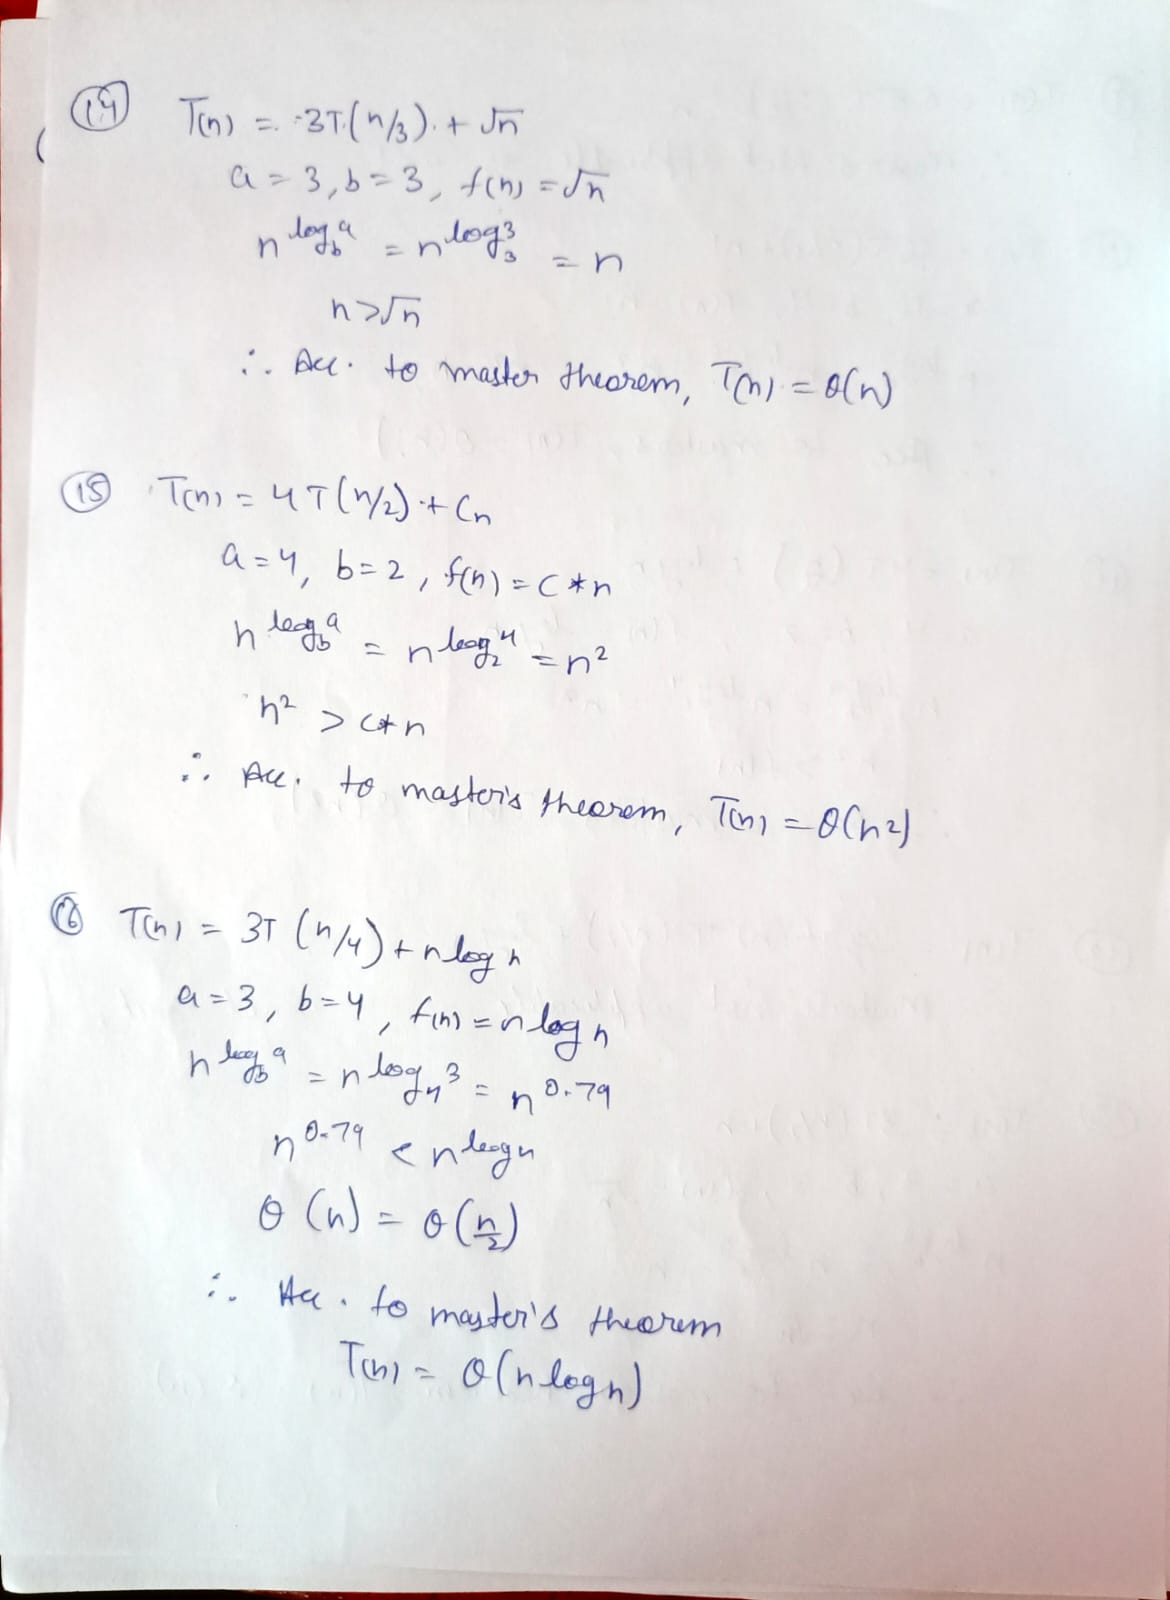 (14) T(n) = 3T(n/3) + √n
a = 3, b = 3, f(n) = √n
n^log_b^a = n^log_3^3 = n
n > √n
∴ Acc. to master theorem, T(n) = θ(n)
(15) T(n) = 4T(n/2) + Cn
a = 4, b = 2, f(n) = C*n
n^log_b^a = n^log_2^4 = n²
n² > C*n
∴ Acc. to master's theorem, T(n) = θ(n²)
(16) T(n) = 3T(n/4) + n log n
a = 3, b = 4, f(n) = n log n
n^log_b^a = n^log_4^3 = n^0.79
n^0.79 < n log n
θ(n) = θ(n/2)
∴ Acc. to master's theorem
T(n) = θ(n log n)